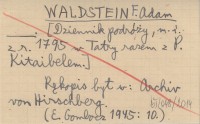 WALDSTEIN F. Adam
___. [Dziennik podróży, n. i.
z r. 1795 w Tatry razem z P.
Kitaibelem.]
Rękopis był w: Archiw
von Hirschberg.
(E. Gombocz 1945: 10.)